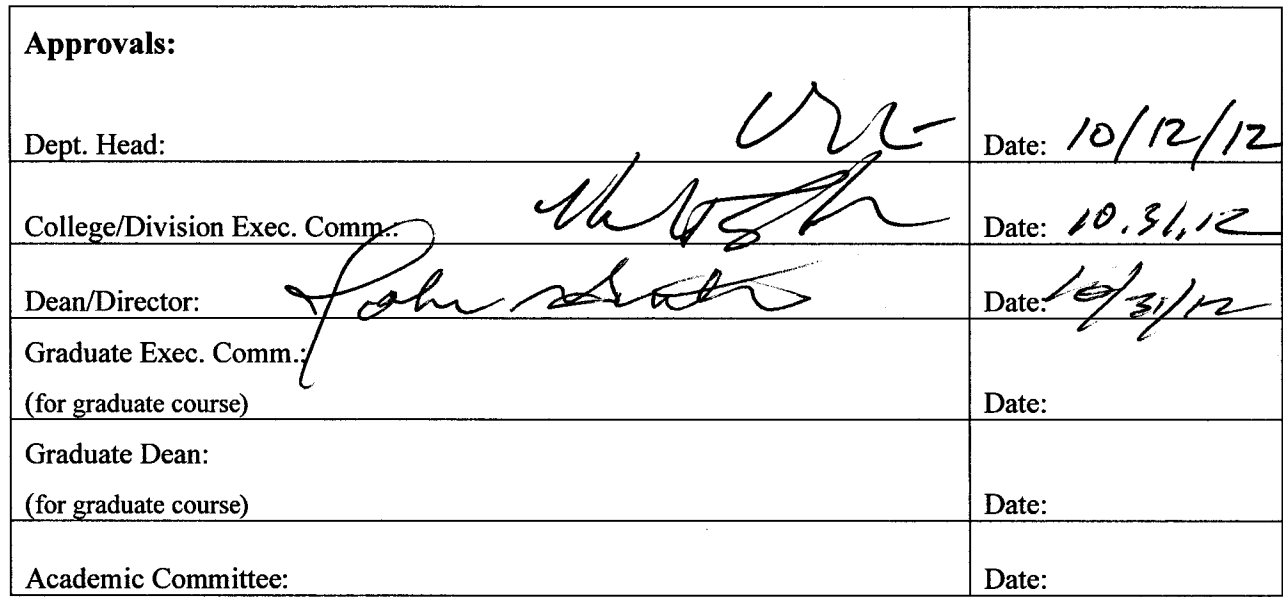 Approvals:
Dept. Head: Date: 10/12/12
College/Division Exec. Comm.: Date: 10.31.12
Dean/Director: Date: 10/31/12
Graduate Exec. Comm.:
(for graduate course) Date:
Graduate Dean:
(for graduate course) Date:
Academic Committee: Date: